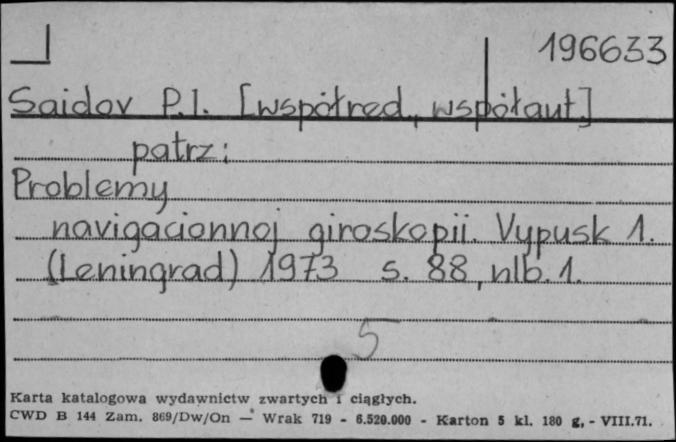 196633
Saidov P.I. [współred., współaut.]
patrz:
Problemy
navigacionnoj giroskopii. Vypusk 1.
(Leningrad) 1973 s. 88, nlb. 1.
5
Karta katalogowa wydawnictw zwartych i ciągłych.
CWD B 144 Zam. 869/Dw/On — Wrak 719 - 6.520.000 - Karton 5 kl. 180 g, - VIII.71.